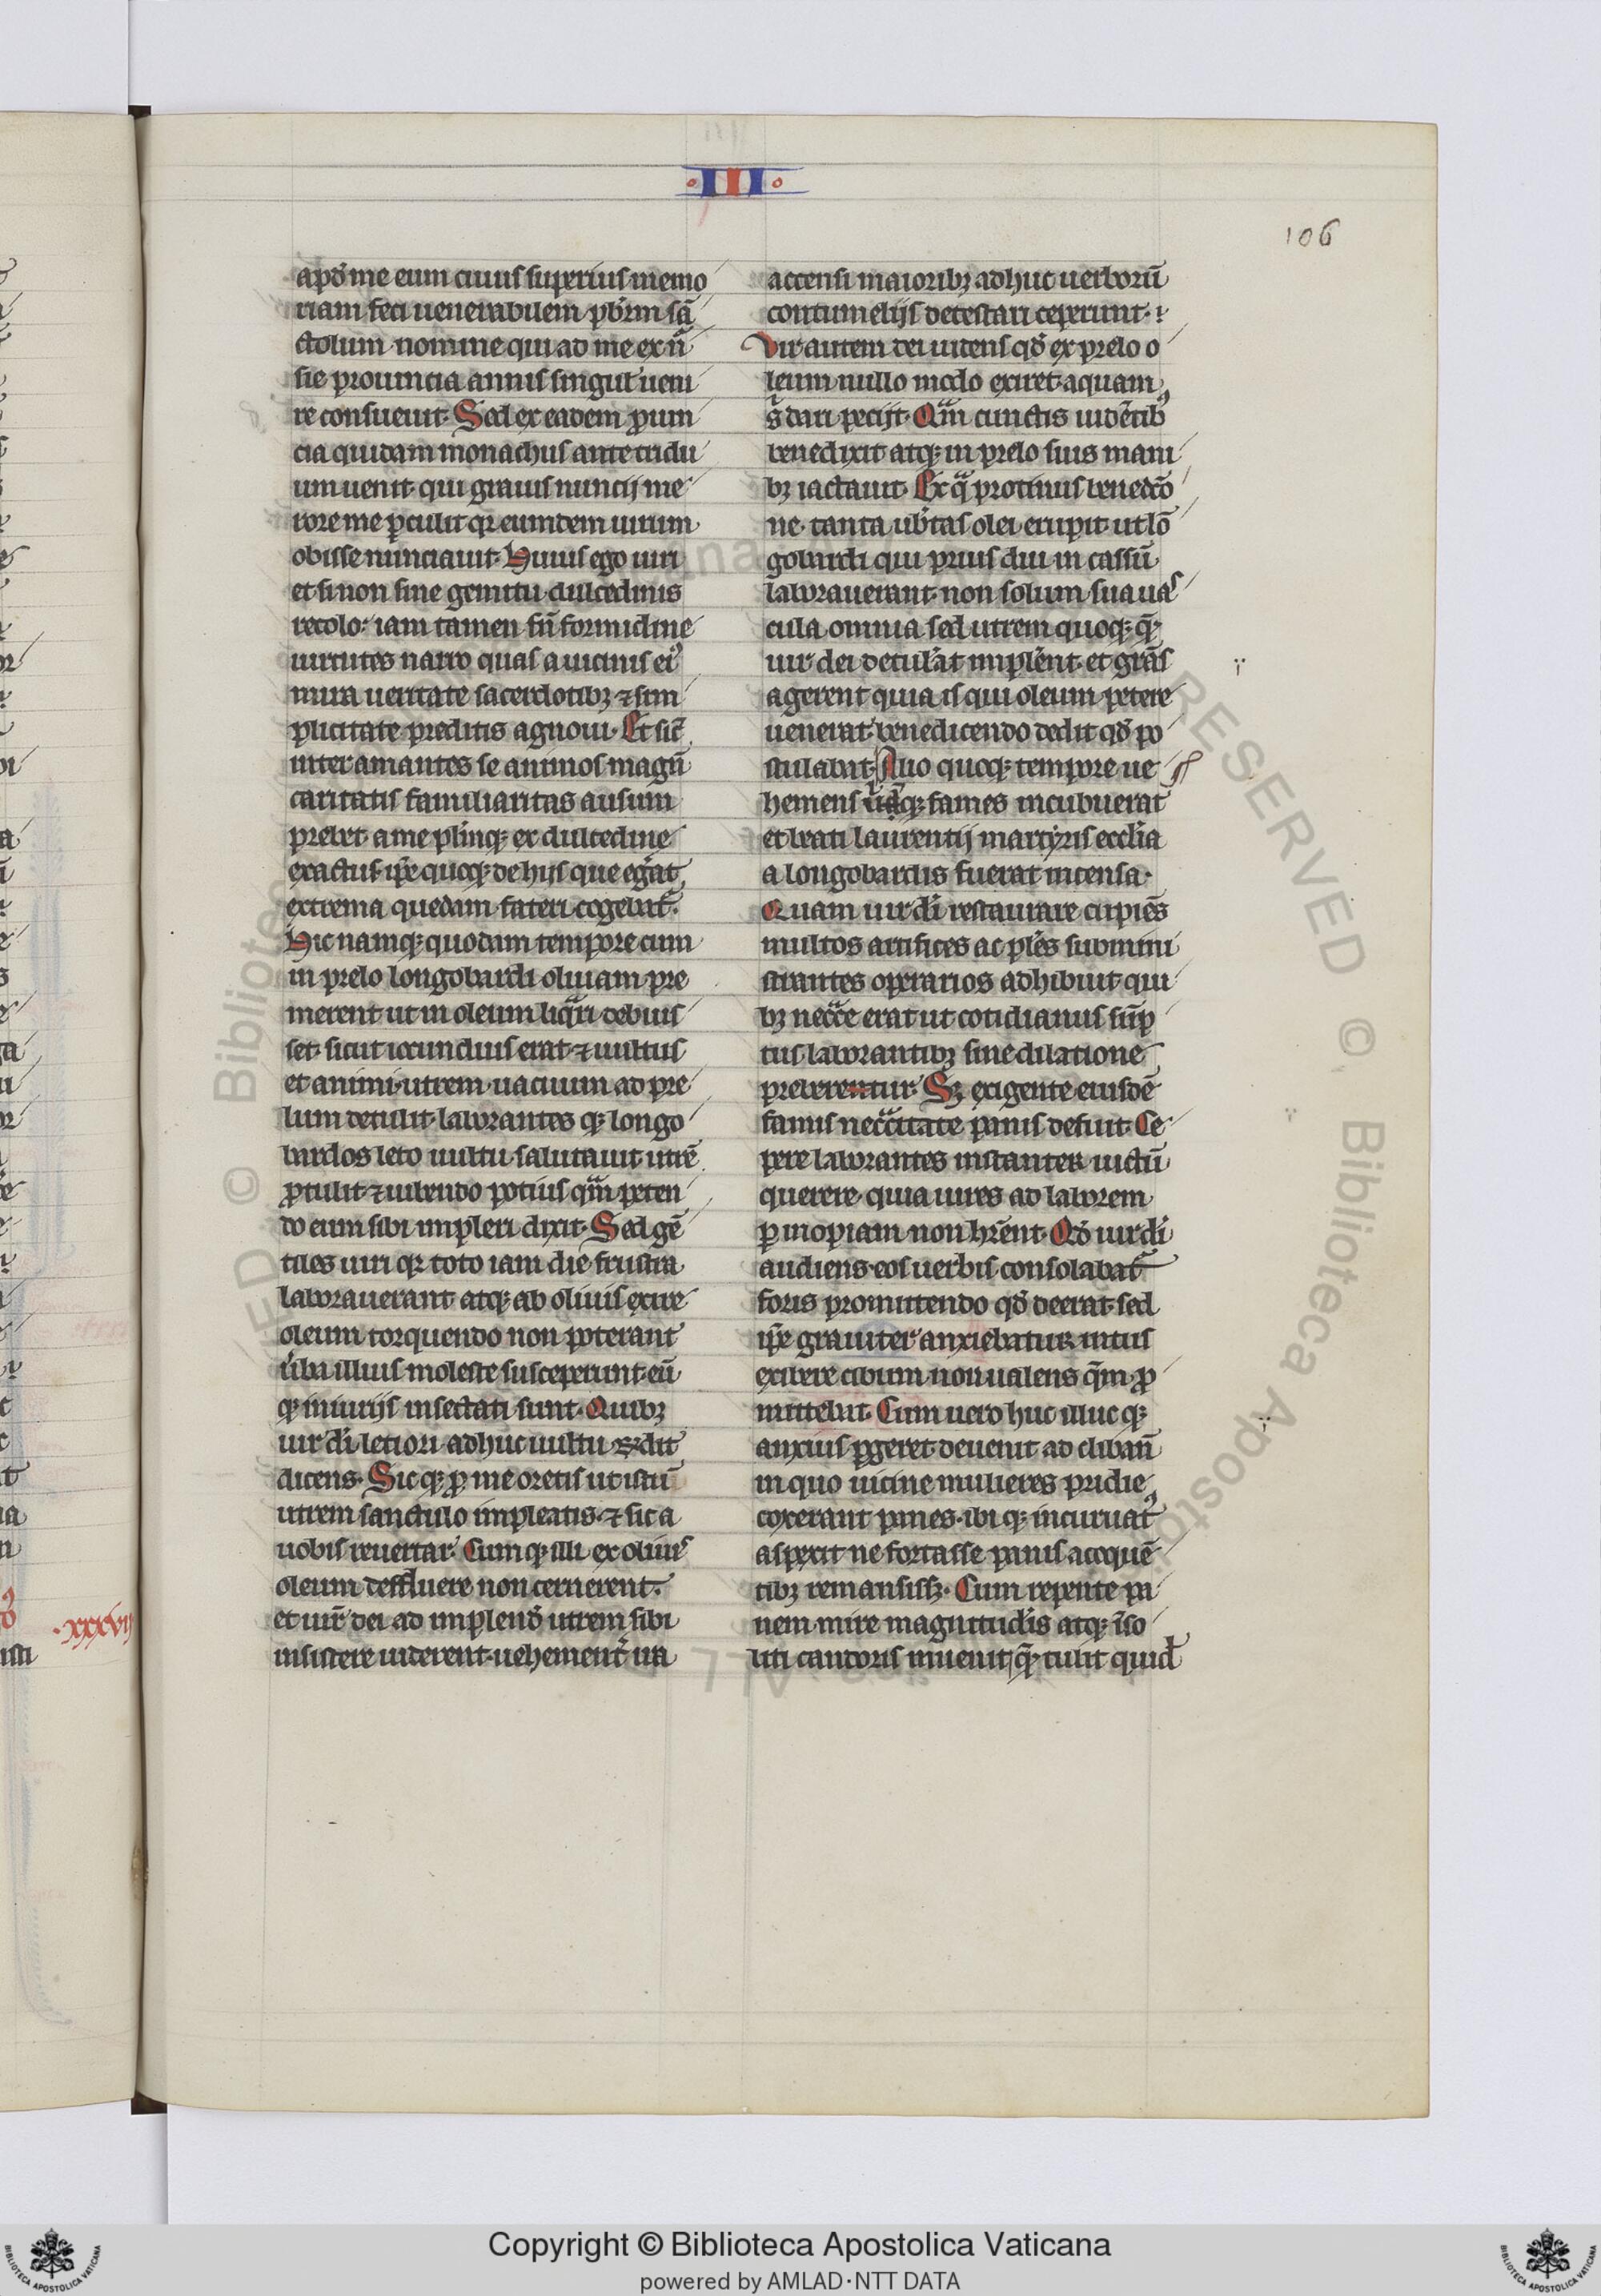 ·III·
106
apđ me eum cuius superius memo
riam feci uenerabilem pbr̄m sā
ctolum nomine qui ad me ex ń
sie prouincia annis singul' ueni
re consueuit. Sed ex eadem ꝓuin
cia quidam monachus ante tridu
um uenit qui grauis nuncij me
rore me ꝑculit qꝛ eumdem uirum
obisse nunciauit. Huius ego uiri
et si non sine gemitu dulcedinis
recolo: iam tamen sn̄ formidine
uirtutes narro quas a uicinis eiꝰ
mira ueritate sacerdotibꝫ ⁊ sim
plicitate preditis agnoui. Et sic̄
inter amantes se animos magń
caritatis familiaritas ausum
prebet a me pler̄inqꝫ ex dulcedine
exactus ip̄e quoqꝫ de hijs que egāt
extrema quedam fateri cogebat᷑.
Hic namqꝫ quodam tempore cum
in prelo longobardi oliuam pre
merent ut in oleum liqͣri debuis
set. sicut iocundus erat ⁊ uultus
et animi utrem uacuum ad pre
lum detulit. laborantes qꝫ longo
bardos leto uultu salutauit utrē
ꝓtulit ⁊ iubendo potius qͣm peten
do eum sibi impleri dixit. Sed gē
tiles uiri qꝛ toto iam die frustra
laborauerant atqꝫ ab oliuis exire
oleum torquendo non poterant
ūba illius moleste susceperunt. eū
qꝫ iniurijs insectati sunt. Quibꝫ
uir di letiori adhuc uultu r̄ndit
dicens. Sic qꝫ ꝓ me oretis ut istū
utrem sanctulo impleatis. ⁊ sic a
uobis reuertar. Cum qꝫ illi ex oliuis
oleum deffluere non cernerent.
et uir̄ dei ad implend̄ utrem sibi
insistere uiderent. uehement᷑ ira
accensi maioribꝫ adhuc uerborū
contumelijs detestari ceperunt.
Vir autem dei uidens qđ ex prelo o
leum nullo modo exiret aquam
s̄ dari petijt. Qm̄ cunctis uidētibꝰ
benedixit atqꝫ in prelo suis mani
bꝫ iactauit. Ex qͣ protinus benedc̄o
ne. tanta ub̄tas olei erupit ut lō
gobardi qui prius diu in cassū
laborauerant. non solum sua uas
cula omnia sed utrem quoqꝫ qē
uir dei detul̄at implēnt. et grās
agerent quia is qui oleum petere
uenerat benedicendo dedit qđ po
stulabat. Alio quoqꝫ tempore ue
hemens fames incubuerat
et beati laurentij martyris eccl̄ia
a longobardis fuerat incensa.
Quam uir di restaurare cupiēs
multos artifices ac pl̄es submini
strantes operarios adhibuit qui
bꝫ nec̄ce erat ut cotidianus sūp
tus laborantibꝫ sine dilatione
preberentur. Sꝫ exigente eiusdē
famis nec̄citate panis defuit. Ce
pere laborantes instanter uictū
querere quia uires ad laborem
ꝑ inopiam non hr̄ent. Qđ uir di
audiens eos uerbis consolabat᷑
foris promittendo qđ deerat. sed
ip̄e grauiter anxiebatur intus
exibere cibum non ualens qm̄ ꝓ
mittebat. Cum uero huc illuc qꝫ
anxius ꝑgeret deuenit ad clibanū
in quo uicine mulieres pridie
coxerant panes. ibi qꝫ incuruatꝰ
aspexit ne fortasse panis a coquē
tibꝫ remansissꝫ. Cum repente pa
nem mire magnitudīs atqꝫ īso
liti candoris inuenit qē tulit quid̄
·xxxvij
Copyright © Biblioteca Apostolica Vaticana
powered by AMLAD·NTT DATA